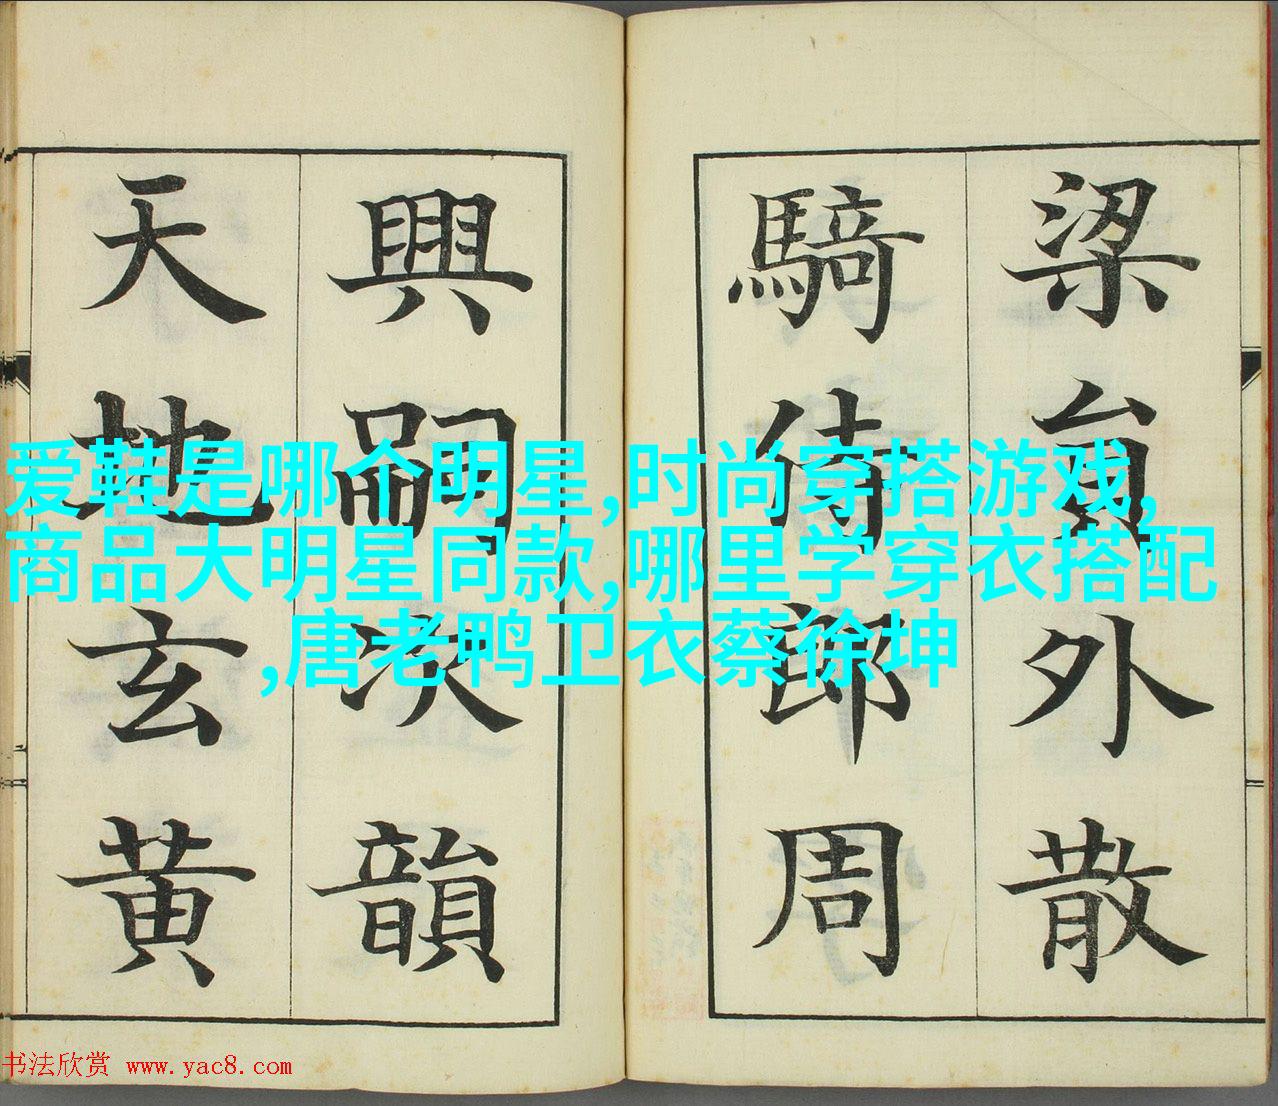 梁貟外散
騎侍郎周
興嗣次韻
天地玄黄
爱鞋是哪个明星,时尚穿搭游戏,
商品大明星同款,哪里学穿衣搭配
,唐老鸭卫衣蔡徐坤
书法欣赏 www.yac8.com